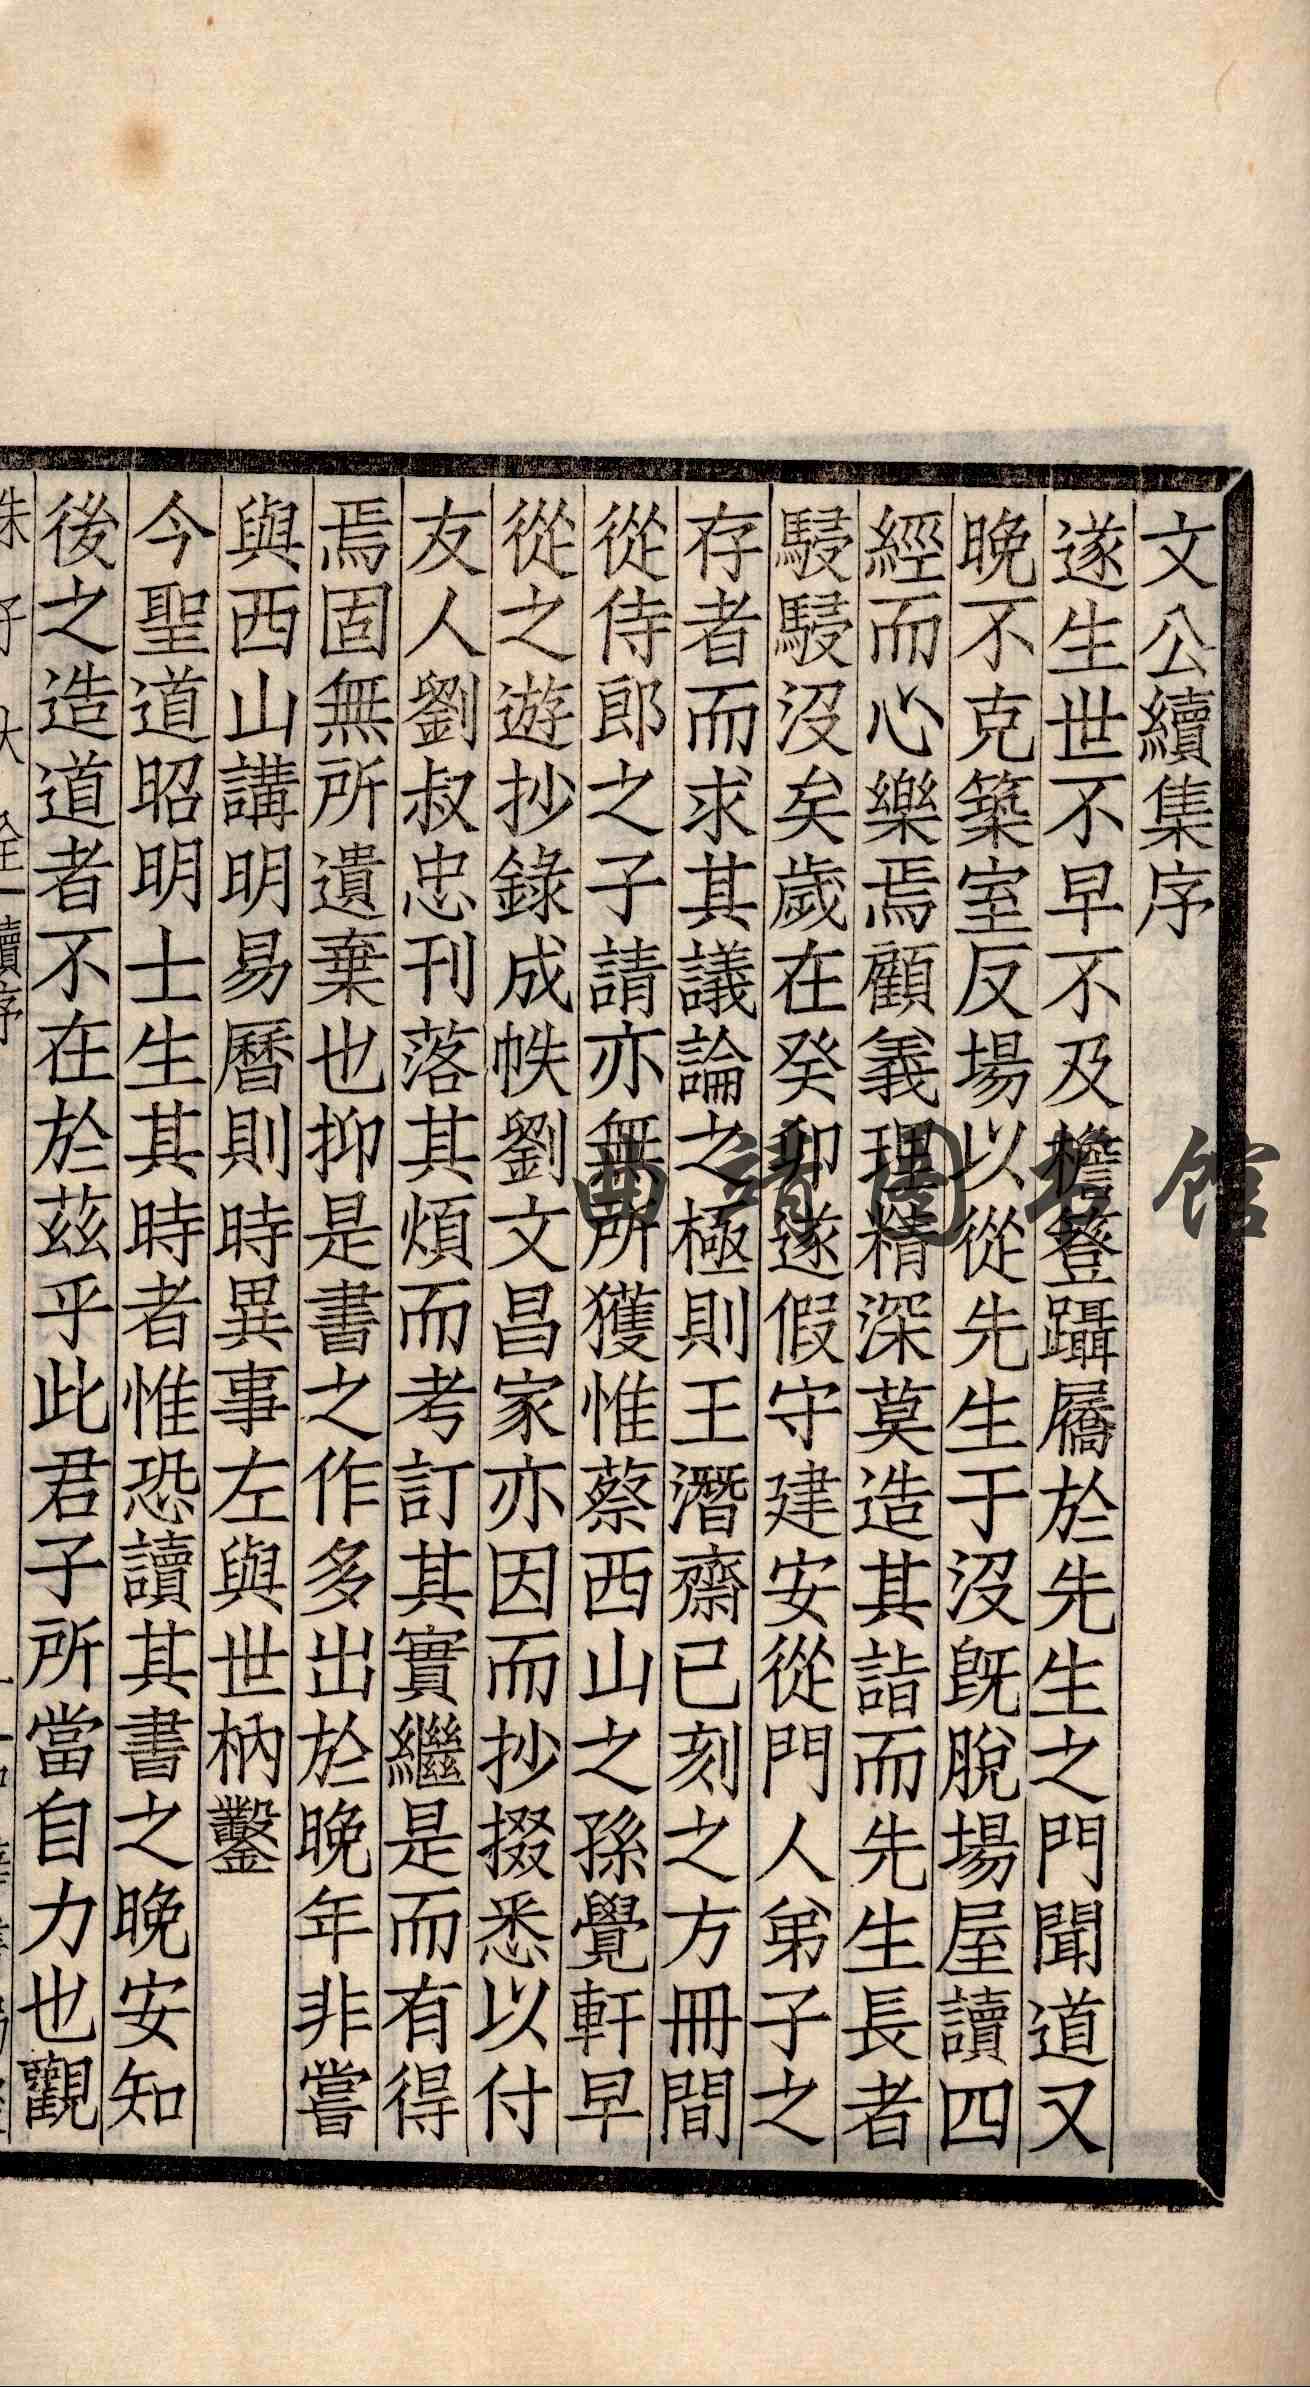 文公續集序
遂生世不早不及檐簦躡屩於先生之門聞道又
晚不克築室反場以從先生于沒旣脫場屋讀四
經而心樂焉顧義理精深莫造其詣而先生長者
駸駸沒矣歲在癸卯遂假守建安從門人弟子之
存者而求其議論之極則王潛齋已刻之方冊間
從侍郎之子請亦無所獲惟蔡西山之孫覺軒早
從之遊抄錄成帙劉文昌家亦因而抄掇悉以付
友人劉叔忠刊落其煩而考訂其實繼是而有得
焉固無所遺棄也抑是書之作多出於晚年非嘗
與西山講明易曆則時異事左與世枘鑿
今聖道昭明士生其時者惟恐讀其書之晚安知
後之造道者不在於茲乎此君子所當自力也觀
曲靖图书馆